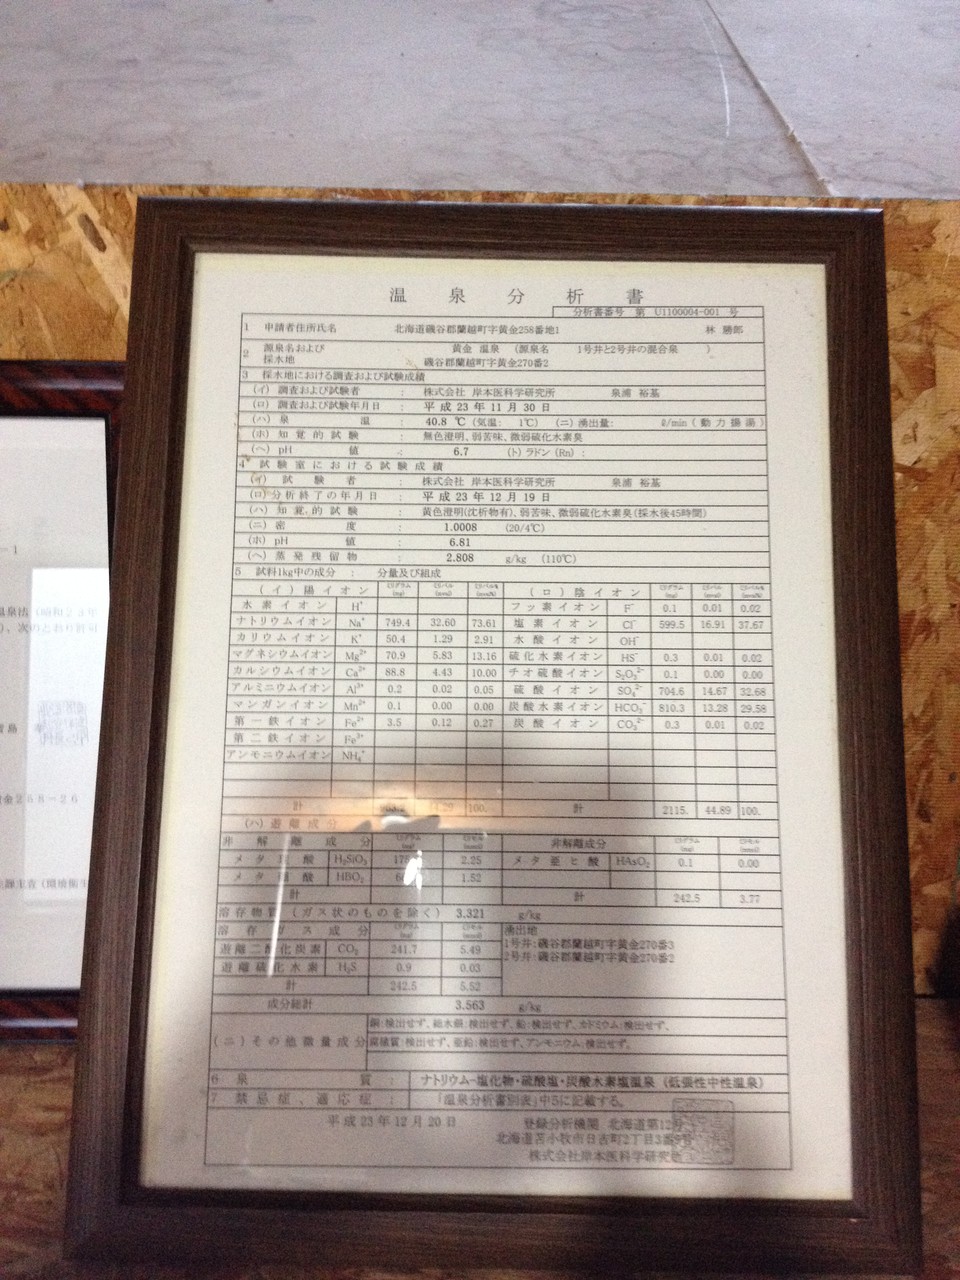 温泉分析書
分析書番号 第 U1100004-001 号
1 申請者住所氏名 北海道磯谷郡蘭越町字黄金258番地1 林 勝郎
2 源泉名および採水地 黄金 温泉 (源泉名 1号井と2号井の混合泉 )
磯谷郡蘭越町字黄金270番2
3 採水地における調査および試験成績
(イ) 調査および試験者 : 株式会社 岸本医科学研究所 泉浦 裕基
(ロ) 調査および試験年月日 : 平成 23 年 11 月 30 日
(ハ) 泉温 : 40.8 ℃ (気温: 1℃) (ニ) 湧出量: ℓ/min (動力揚湯)
(ホ) 知覚的試験 : 無色澄明、弱苦味、微弱硫化水素臭
(ヘ) pH値 : 6.7 (ト) ラドン (Rn) :
4 試験室における試験成績
(イ) 試験者 : 株式会社 岸本医科学研究所 泉浦 裕基
(ロ) 分析終了の年月日 : 平成 23 年 12 月 19 日
(ハ) 知覚的試験 : 黄色澄明(沈析物有)、弱苦味、微弱硫化水素臭(採水後45時間)
(ニ) 密度 : 1.0008 (20/4℃)
(ホ) pH値 : 6.81
(ヘ) 蒸発残留物 : 2.808 g/kg (110℃)
5 試料1kg中の成分 : 分量及び組成
(イ) 陽イオン ミリグラム (mg) ミリバル (mval) ミリバル% (mval%) (ロ) 陰イオン ミリグラム (mg) ミリバル (mval) ミリバル% (mval%)
水素イオン H⁺ フッ素イオン F⁻ 0.1 0.01 0.02
ナトリウムイオン Na⁺ 749.4 32.60 73.61 塩素イオン Cl⁻ 599.5 16.91 37.67
カリウムイオン K⁺ 50.4 1.29 2.91 水酸イオン OH⁻
マグネシウムイオン Mg²⁺ 70.9 5.83 13.16 硫化水素イオン HS⁻ 0.3 0.01 0.02
カルシウムイオン Ca²⁺ 88.8 4.43 10.00 チオ硫酸イオン S₂O₃²⁻ 0.1 0.00 0.00
アルミニウムイオン Al³⁺ 0.2 0.02 0.05 硫酸イオン SO₄²⁻ 704.6 14.67 32.68
マンガンイオン Mn²⁺ 0.1 0.00 0.00 炭酸水素イオン HCO₃⁻ 810.3 13.28 29.58
第一鉄イオン Fe²⁺ 3.5 0.12 0.27 炭酸イオン CO₃²⁻ 0.3 0.01 0.02
第二鉄イオン Fe³⁺
アンモニウムイオン NH₄⁺
計 100. 計 2115. 44.89 100.
(ハ) 遊離成分
非解離成分 ミリグラム (mg) ミリモル (mmol) 非解離成分 ミリグラム (mg) ミリモル (mmol)
メタ酸 H₂SiO₃ 2.25 メタ亜ヒ酸 HAsO₂ 0.1 0.00
メタ酸 HBO₂ 1.52
計 計 242.5 3.77
溶存物質 (ガス状のものを除く) 3.321 g/kg
溶存ガス成分 ミリグラム (mg) ミリモル (mmol) 湧出地
遊離二酸化炭素 CO₂ 241.7 5.49 1号井:磯谷郡蘭越町字黄金270番3
遊離硫化水素 H₂S 0.9 0.03 2号井:磯谷郡蘭越町字黄金270番2
計 242.5 5.52
成分総計 3.563 g/kg
(ニ) その他微量成分 銅:検出せず、総水銀:検出せず、鉛:検出せず、カドミウム:検出せず、
腐植質:検出せず、亜鉛:検出せず、アンモニウム:検出せず。
6 泉質 : ナトリウム-塩化物・硫酸塩・炭酸水素塩温泉 (低張性中性温泉)
7 禁忌症、適応症 : 「温泉分析書別表」中5に記載する。
平成 23 年 12 月 20 日 登録分析機関 北海道第12号
北海道苫小牧市日吉町2丁目3番
株式会社岸本医科学研究
-1
温泉法 (昭和23年
)、次のとおり許可
金258-26